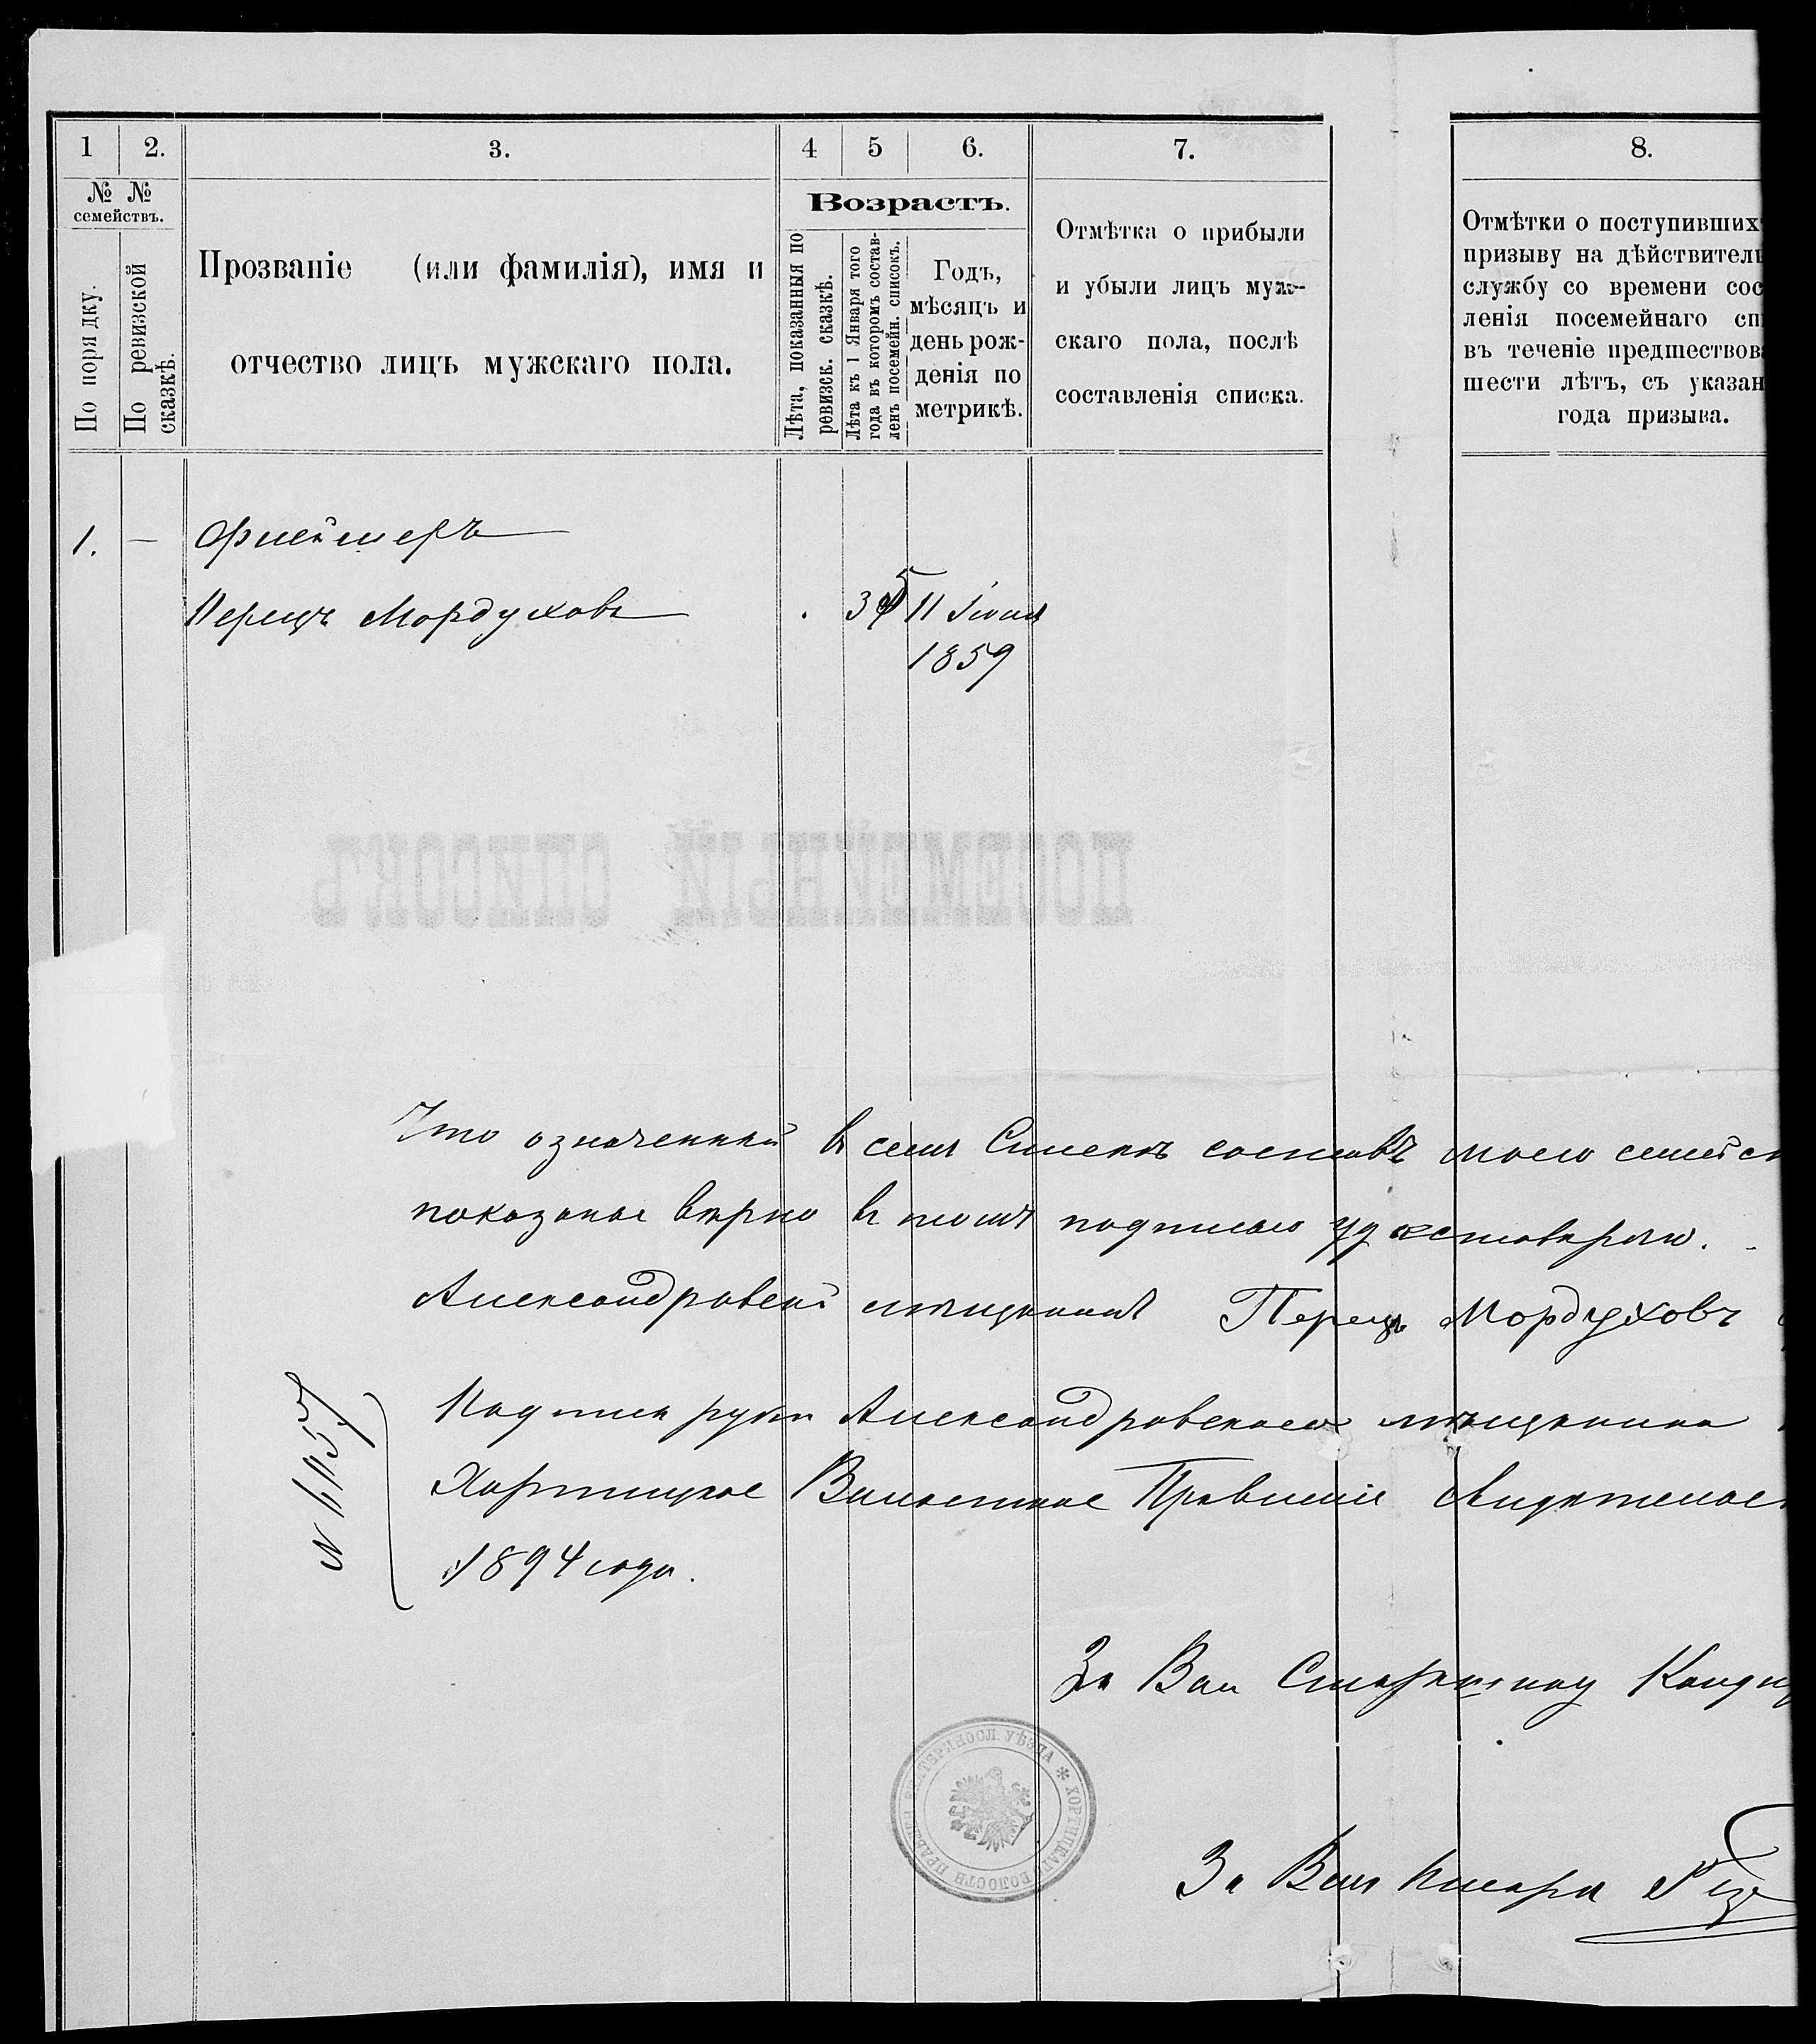 1 2. 3. 4 5 6. 7. 8.
№ № семействъ.
По порядку.
По ревизской сказкѣ.
Прозваніе (или фамилія), имя и
отчество лицъ мужскаго пола.
Возрастъ.
Лѣта, показанныя по
ревизск. сказкѣ.
Лѣта къ 1 Января того
года въ которомъ состав-
ленъ посемейн. списокъ.
Годъ,
мѣсяцъ и
день рож-
денія по
метрикѣ.
Отмѣтка о прибыли
и убыли лицъ муж-
скаго пола, послѣ
составленія списка.
Отмѣтки о поступивших
призыву на дѣйствитель
службу со времени сос
ленія посемейнаго сп
въ теченіе предшествов
шести лѣтъ, съ указан
года призыва.
1. —
Перецъ Мордуховъ 35 11 Іюня
1859
ПОСЕМЕЙНЫЙ СПИСОКЪ
Что означенный въ семъ Спискѣ составъ моего семейс
показанъ вѣрно въ томъ подписью удостовѣряю.
Александровскій мѣщанинъ Перецъ Мордуховъ
Подпись руки Александровскаго мѣщанина
Хортицкое Волостное Правленіе свидѣтельс
1894 года.
№
За Вол Старшину Канди
За Вол Писаря
ХОРТИЦКАГ ВОЛОСТН ПРАВЛЕН ЕКАТЕРИНОСЛ. УѢЗДА *